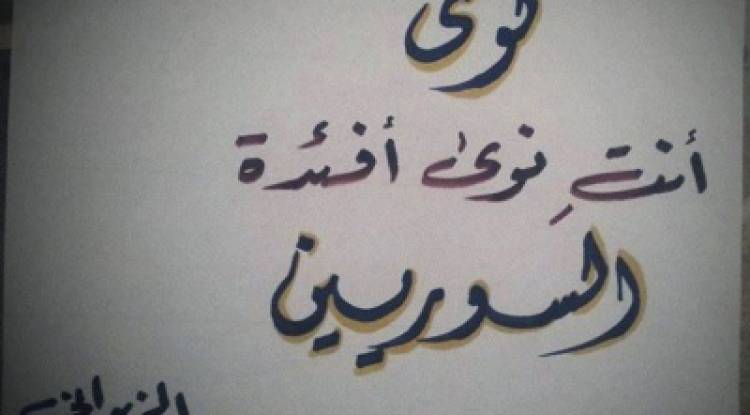 نوى
أنتِ نوىٰ أفئدة
السوريين